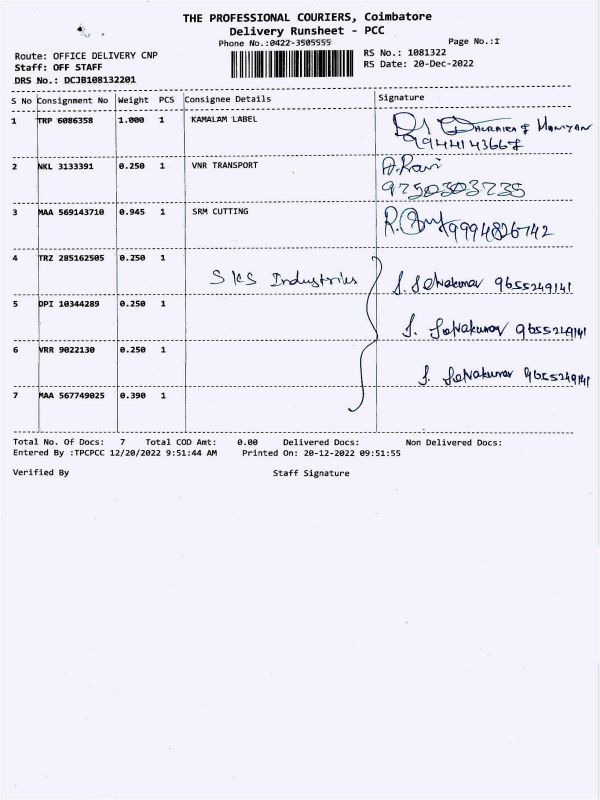 THE PROFESSIONAL COURIERS, Coimbatore
Delivery Runsheet - PCC
Phone No.:0422-3505555 Page No.:1
Route: OFFICE DELIVERY CNP RS No.: 1081322
Staff: OFF STAFF RS Date: 20-Dec-2022
DRS No.: DCJB108132201
S No Consignment No Weight PCS Consignee Details Signature
1 TRP 6086358 1.000 1 KAMALAM LABEL
2 NKL 3133391 0.250 1 VNR TRANSPORT A.Ravi
9750303735
3 MAA 569143710 0.945 1 SRM CUTTING 9994826742
4 TRZ 285162505 0.250 1
SKS Industries 9655249141
5 DPI 10344289 0.250 1
9655249141
6 VRR 9022130 0.250 1
9655249141
7 MAA 567749025 0.390 1
Total No. Of Docs: 7 Total COD Amt: 0.00 Delivered Docs: Non Delivered Docs:
Entered By :TPCPCC 12/20/2022 9:51:44 AM Printed On: 20-12-2022 09:51:55
Verified By Staff Signature